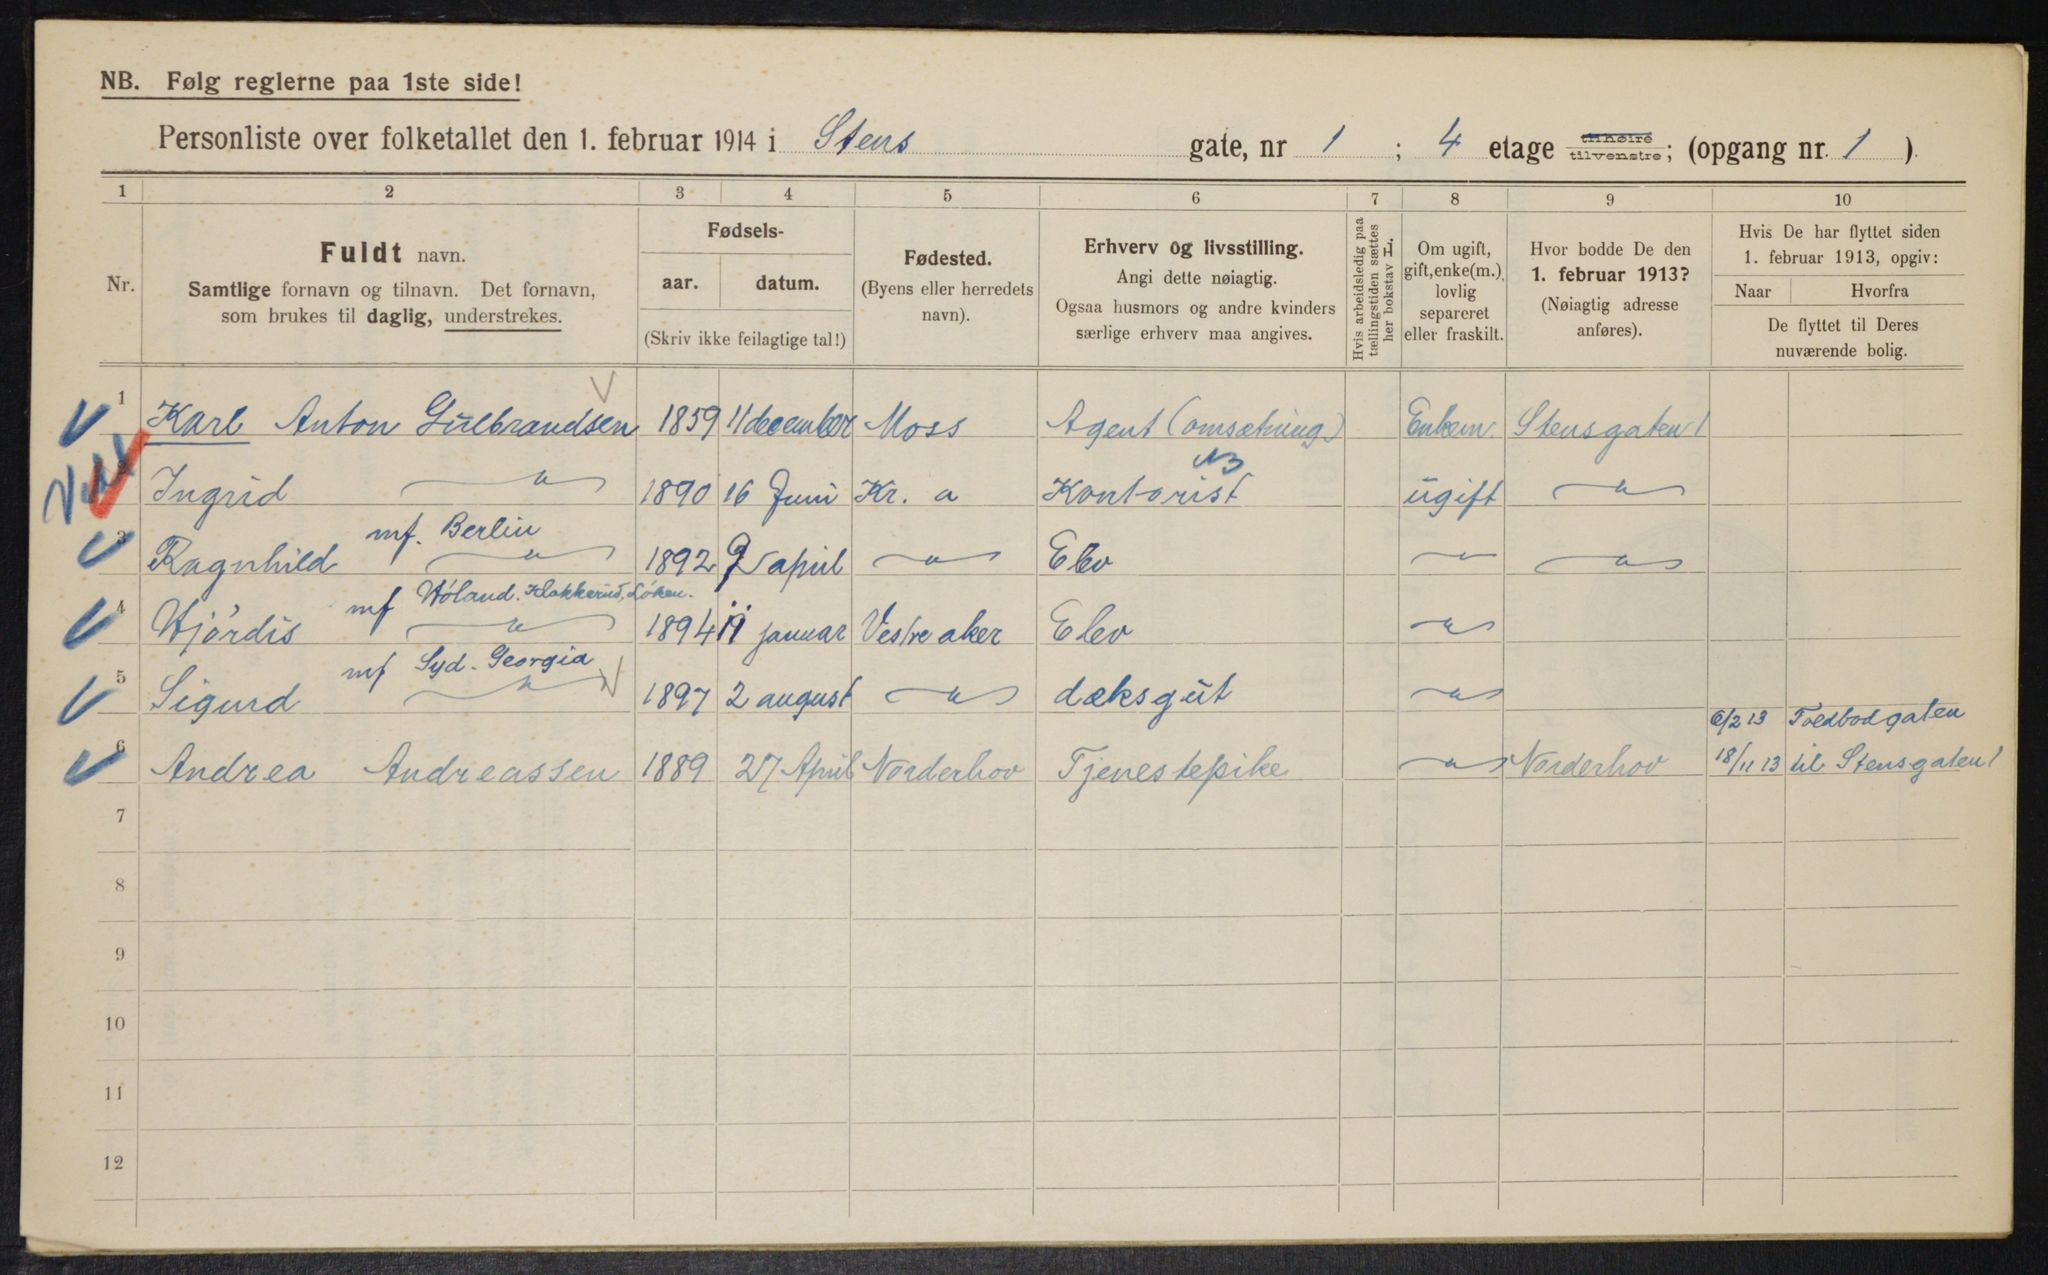 NB. Følg reglerne paa 1ste side!
Personliste over folketallet den 1. februar 1914 i Stens gate, nr 1 ; 4 etage tilhøire tilvenstre; (opgang nr. 1 ).
1 2 3 4 5 6 7 8 9 10
Nr.
Fuldt navn.
Samtlige fornavn og tilnavn. Det fornavn,
som brukes til daglig, understrekes.
Fødsels-
aar. datum.
(Skriv ikke feilagtige tal!)
Fødested.
(Byens eller herredets
navn).
Erhverv og livsstilling.
Angi dette nøiagtig.
Ogsaa husmors og andre kvinders
særlige erhverv maa angives.
Hvis arbeidsledig paa
tællingstiden sættes
her bokstav L.
Om ugift,
gift, enke(m.),
lovlig
separeret
eller fraskilt.
Hvor bodde De den
1. februar 1913?
(Nøiagtig adresse
anføres).
Hvis De har flyttet siden
1. februar 1913, opgiv:
Naar Hvorfra
De flyttet til Deres
nuværende bolig.
1 Karl Anton Gulbrandsen 1859 11 december Moss Agent (omsætning) Enkem. Stensgaten 1
NB
2 Ingrid — " — 1890 16 Juni Kr. a Kontorist ugift — " —
mf. Berlin
3 Ragnhild — " — 1892 9 april — " — Elev — " — — " —
mf Høland. Klokkerud, Løken.
4 Hjørdis — " — 1894 11 januar Vestre aker Elev — " —
mf Syd-Georgia
5 Sigurd — " — 1897 2 august — " — dæksgut — " —
6/2 13 Toldbodgaten
6 Andrea Andreassen 1889 27 April Norderhov Tjenestepike — " — Norderhov 18/11 13 til Stensgaten 1
7
8
9
10
11
12